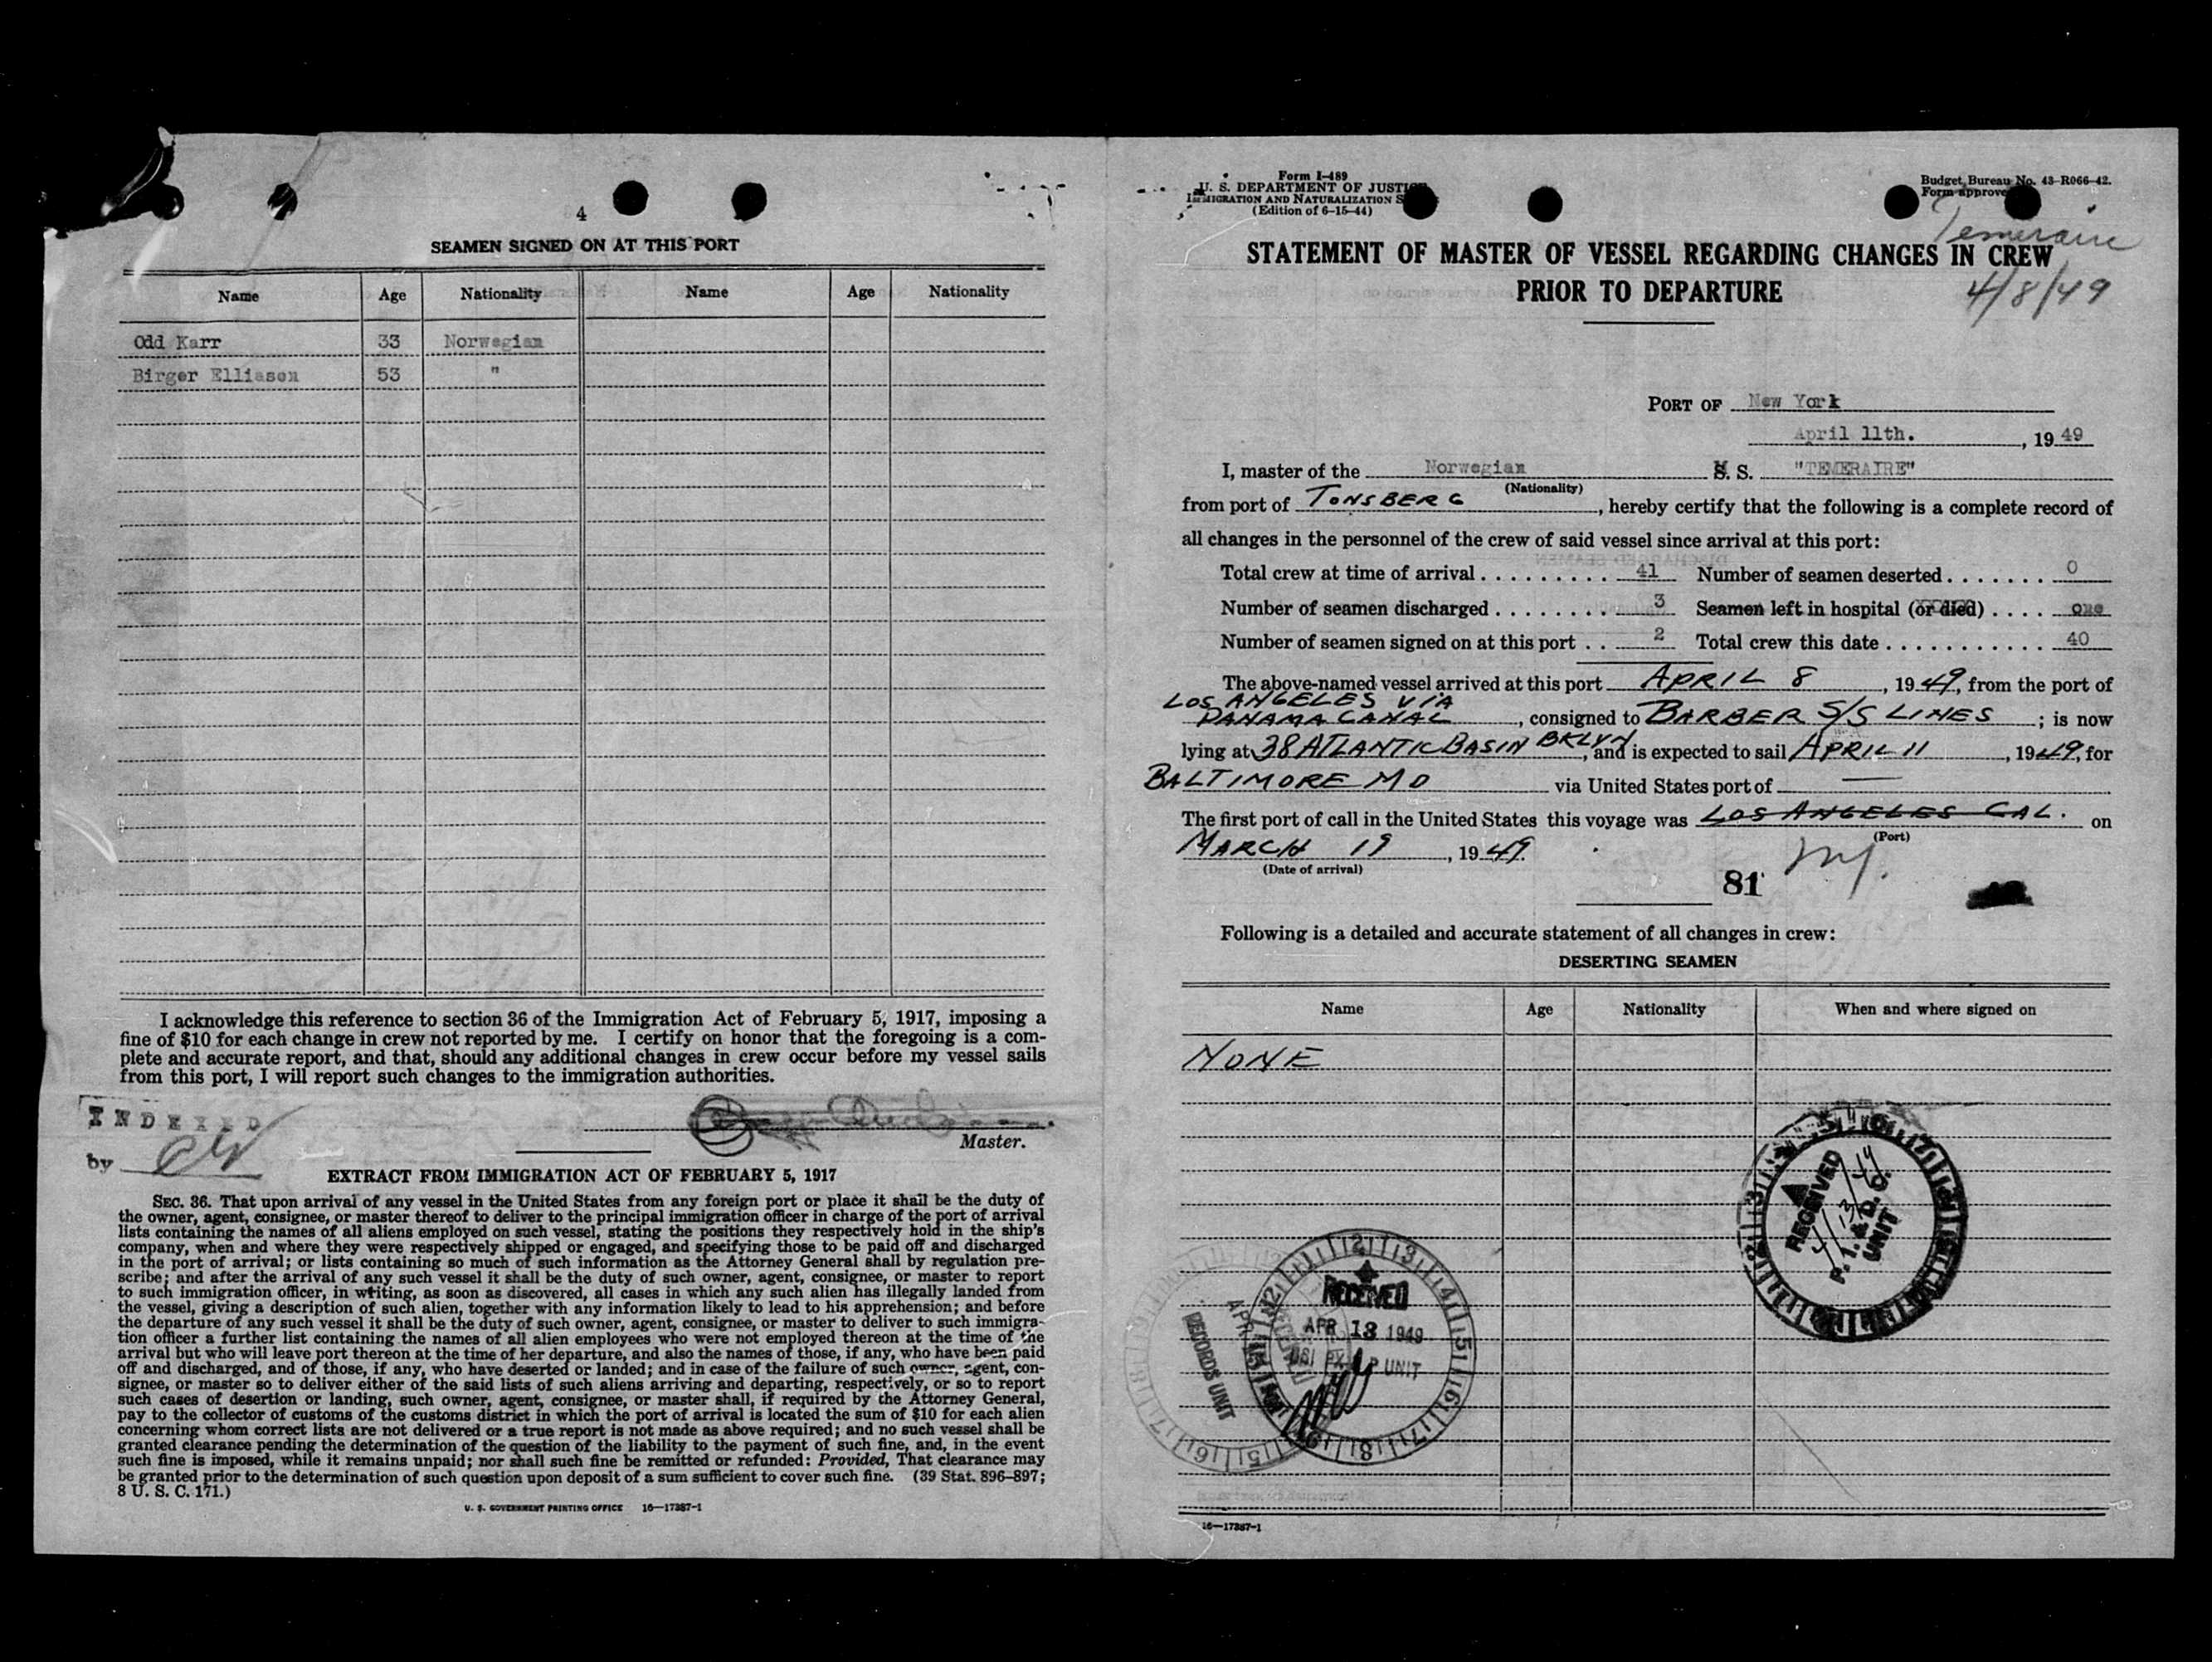 4
SEAMEN SIGNED ON AT THIS PORT
Name Age Nationality Name Age Nationality
Odd Karr 33 Norwegian
Birger Elliasen 53 "
I acknowledge this reference to section 36 of the Immigration Act of February 5, 1917, imposing a
fine of $10 for each change in crew not reported by me. I certify on honor that the foregoing is a com-
plete and accurate report, and that, should any additional changes in crew occur before my vessel sails
from this port, I will report such changes to the immigration authorities.
INDEXED
Master.
by
EXTRACT FROM IMMIGRATION ACT OF FEBRUARY 5, 1917
SEC. 36. That upon arrival of any vessel in the United States from any foreign port or place it shall be the duty of
the owner, agent, consignee, or master thereof to deliver to the principal immigration officer in charge of the port of arrival
lists containing the names of all aliens employed on such vessel, stating the positions they respectively hold in the ship's
company, when and where they were respectively shipped or engaged, and specifying those to be paid off and discharged
in the port of arrival; or lists containing so much of such information as the Attorney General shall by regulation pre-
scribe; and after the arrival of any such vessel it shall be the duty of such owner, agent, consignee, or master to report
to such immigration officer, in writing, as soon as discovered, all cases in which any such alien has illegally landed from
the vessel, giving a description of such alien, together with any information likely to lead to his apprehension; and before
the departure of any such vessel it shall be the duty of such owner, agent, consignee, or master to deliver to such immigra-
tion officer a further list containing the names of all alien employees who were not employed thereon at the time of the
arrival but who will leave port thereon at the time of her departure, and also the names of those, if any, who have been paid
off and discharged, and of those, if any, who have deserted or landed; and in case of the failure of such owner, agent, con-
signee, or master so to deliver either of the said lists of such aliens arriving and departing, respectively, or so to report
such cases of desertion or landing, such owner, agent, consignee, or master shall, if required by the Attorney General,
pay to the collector of customs of the customs district in which the port of arrival is located the sum of $10 for each alien
concerning whom correct lists are not delivered or a true report is not made as above required; and no such vessel shall be
granted clearance pending the determination of the question of the liability to the payment of such fine, and, in the event
such fine is imposed, while it remains unpaid; nor shall such fine be remitted or refunded: Provided, That clearance may
be granted prior to the determination of such question upon deposit of a sum sufficient to cover such fine. (39 Stat. 896-897;
8 U. S. C. 171.)
U. S. GOVERNMENT PRINTING OFFICE 16—17387-1
Form I-489
U. S. DEPARTMENT OF JUSTICE
IMMIGRATION AND NATURALIZATION S
(Edition of 6-15-44)
Budget Bureau No. 43-R066-42.
Form approve
Temeraire
STATEMENT OF MASTER OF VESSEL REGARDING CHANGES IN CREW
PRIOR TO DEPARTURE
4/8/49
PORT OF New York
April 11th., 1949
I, master of the Norwegian S. S. "TEMERAIRE"
(Nationality)
from port of TONSBERG, hereby certify that the following is a complete record of
all changes in the personnel of the crew of said vessel since arrival at this port:
Total crew at time of arrival . . . . . . . . . 41 Number of seamen deserted . . . . . . . 0
Number of seamen discharged . . . . . . . . 3 Seamen left in hospital (or died) . . . . one
Number of seamen signed on at this port . . 2 Total crew this date . . . . . . . . . . . 40
The above-named vessel arrived at this port APRIL 8, 1949, from the port of
LOS ANGELES VIA
PANAMA CANAL, consigned to BARBER S/S LINES; is now
lying at 38 ATLANTIC BASIN BKLYN, and is expected to sail APRIL 11, 1949, for
BALTIMORE MD via United States port of —
The first port of call in the United States this voyage was LOS ANGELES CAL. on
(Port)
MARCH 19, 1949.
(Date of arrival)
81
Following is a detailed and accurate statement of all changes in crew:
DESERTING SEAMEN
Name Age Nationality When and where signed on
NONE
RECEIVED
4/13/49
P. I. & D. O.
UNIT
RECEIVED
APR 13 1949
UNIT
APR
RECORDS UNIT
16—17387-1